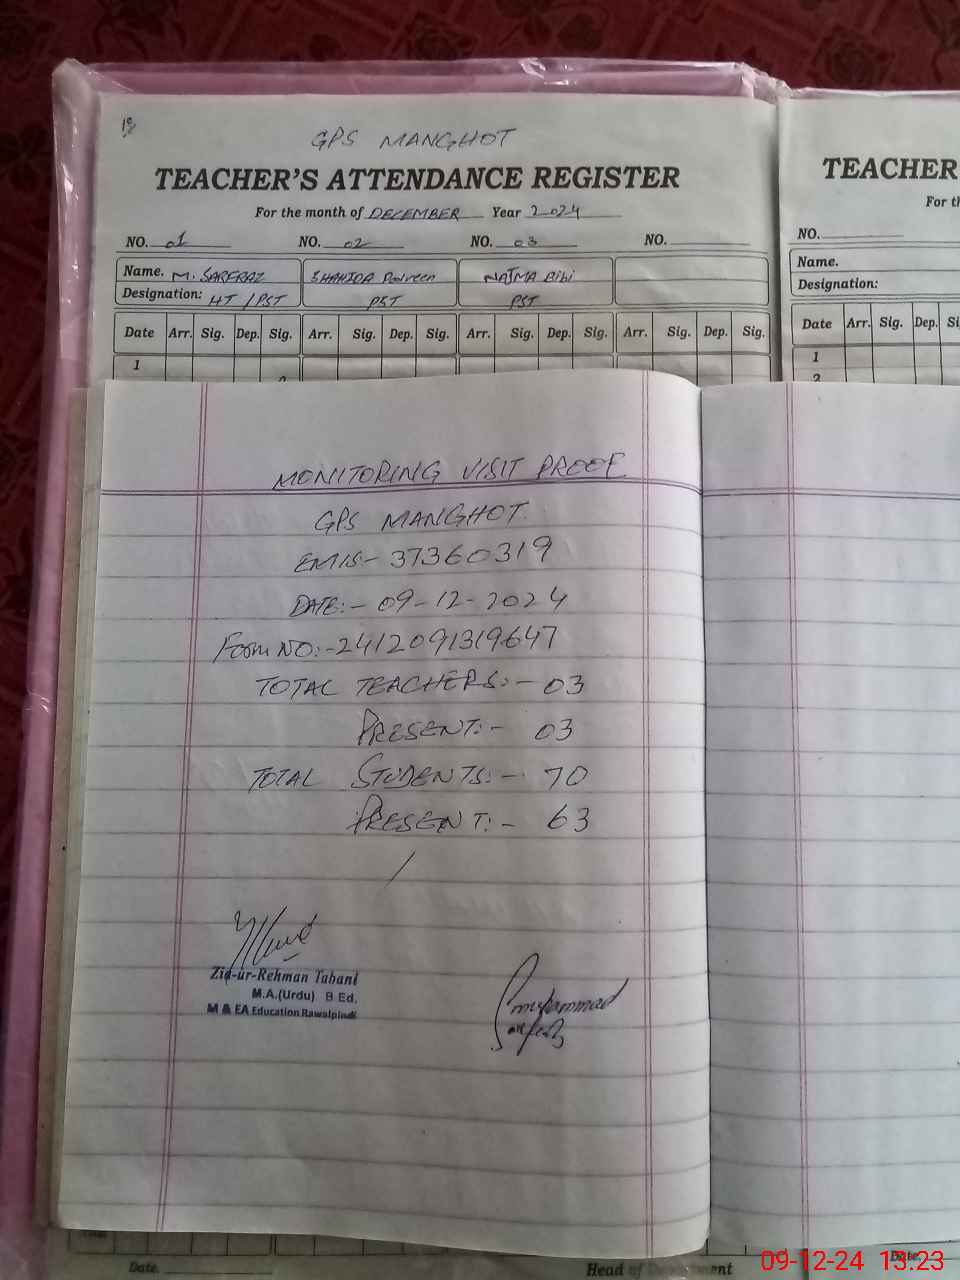 GPS MANGHOT
TEACHER'S ATTENDANCE REGISTER
For the month of DECEMBER Year 2024
NO. 01 NO. 02 NO. 03 NO.
Name. M. SARFRAZ SHAHIDA Parveen NAJMA BiBi
Designation: HT / PST PST PST
Date Arr. Sig. Dep. Sig. Arr. Sig. Dep. Sig. Arr. Sig. Dep. Sig. Arr. Sig. Dep. Sig.
1
TEACHER
For th
NO.
Name.
Designation:
Date Arr. Sig. Dep. Si
1
2
MONITORING VISIT PROOF
GPS MANGHOT.
EMIS:- 37360319
DATE:- 09-12-2024
Form NO:-2412091319647
TOTAL TEACHERS:- 03
PRESENT:- 03
TOTAL STUDENTS:- 70
PRESENT:- 63
Zia-ur-Rehman Tabani
M.A.(Urdu) B.Ed.
M & EA Education Rawalpindi
Muhammad
Sarfraz
Date. Head of Department Date.
09-12-24 13.23